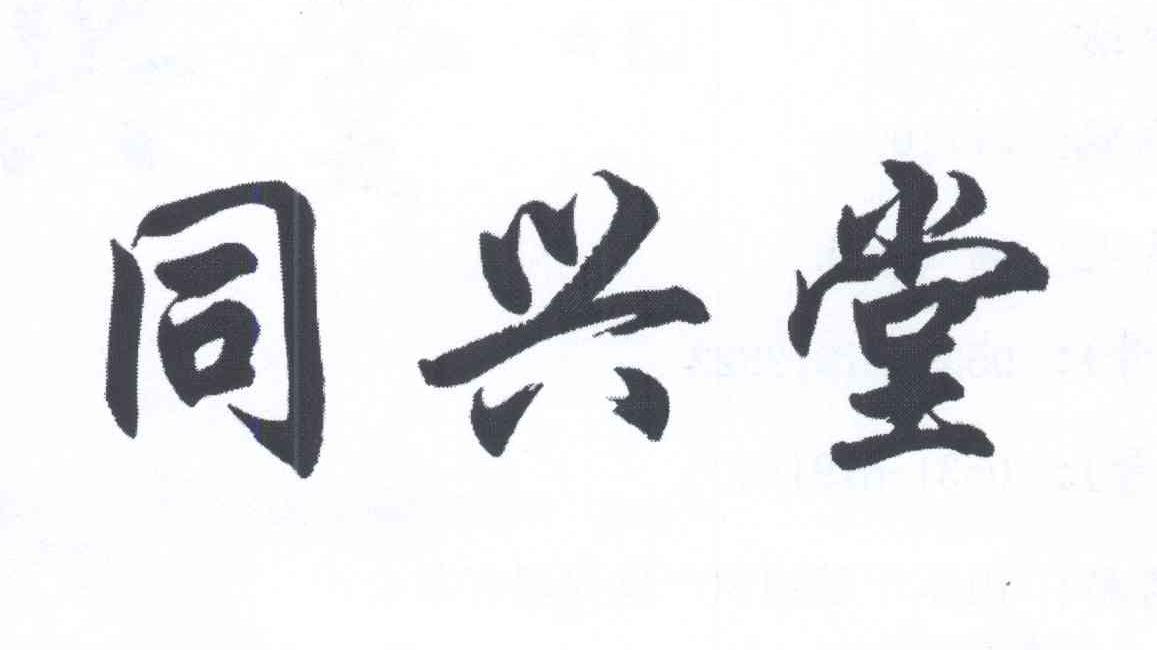 同兴堂